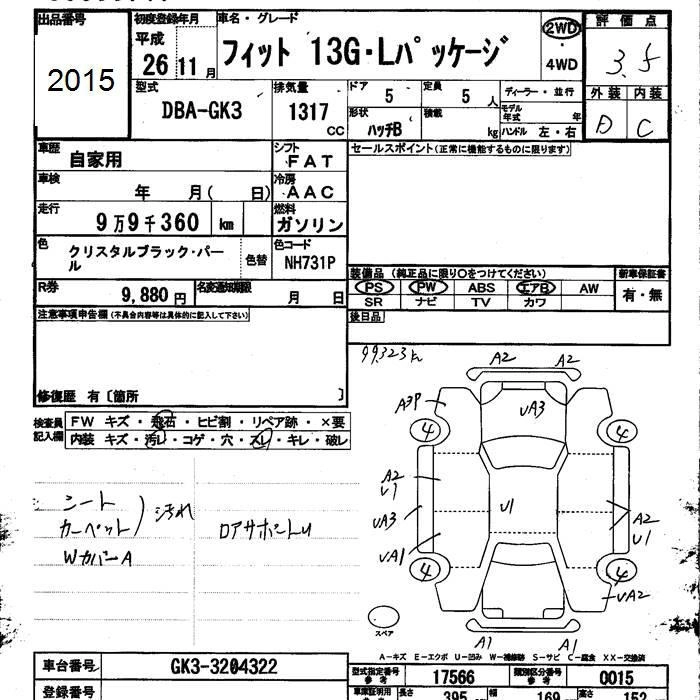 出品番号
2015
初度登録年月
平成
26 11 月
車名・グレード
フィット 13G・Lパッケージ
2WD
・
4WD
評価点
3.5
外装 内装
D C
型式
DBA-GK3
排気量
1317
CC
ドア
5
定員
5 人
形状
ハッチB
積載
kg
ディーラー・並行
モデル年式 年
ハンドル 左・右
車歴
自家用
シフト
FAT
セールスポイント(正常に機能するものに限ります)
車検
年 月( 日)
冷房
AAC
走行
9万9千360 km
燃料
ガソリン
色
クリスタルブラック・パール
色替
色コード
NH731P
R券
9,880 円
名変通知期限
月 日
装備品 (純正品に限り○をつけてください)
PS PW ABS エアB AW
SR ナビ TV カワ
新車保証書
有・無
後日品
注意事項申告欄(不具合内容等は具体的に記入して下さい)
修復歴 有〔箇所 〕
検査員記入欄
FW キズ・飛石・ヒビ割・リペア跡・×要
内装 キズ・汚レ・コゲ・穴・スレ・キレ・破レ
シート
カーペット
汚れ
WカバーA
ロアサポートU
99,323 km
A2 A2
A3P
UA3
4 4
A2
U1
UA3
U1
A2
U1
UA1
4 4
UA2
スペア
A1 A1
A-キズ E-エクボ U-凹み W-補修跡 S-サビ C-腐食 XX-交換済
車台番号
GK3-3204322
登録番号
型式指定番号
参考
17566
類別区分番号
参考
0015
長さ
395
幅
169
高さ
152